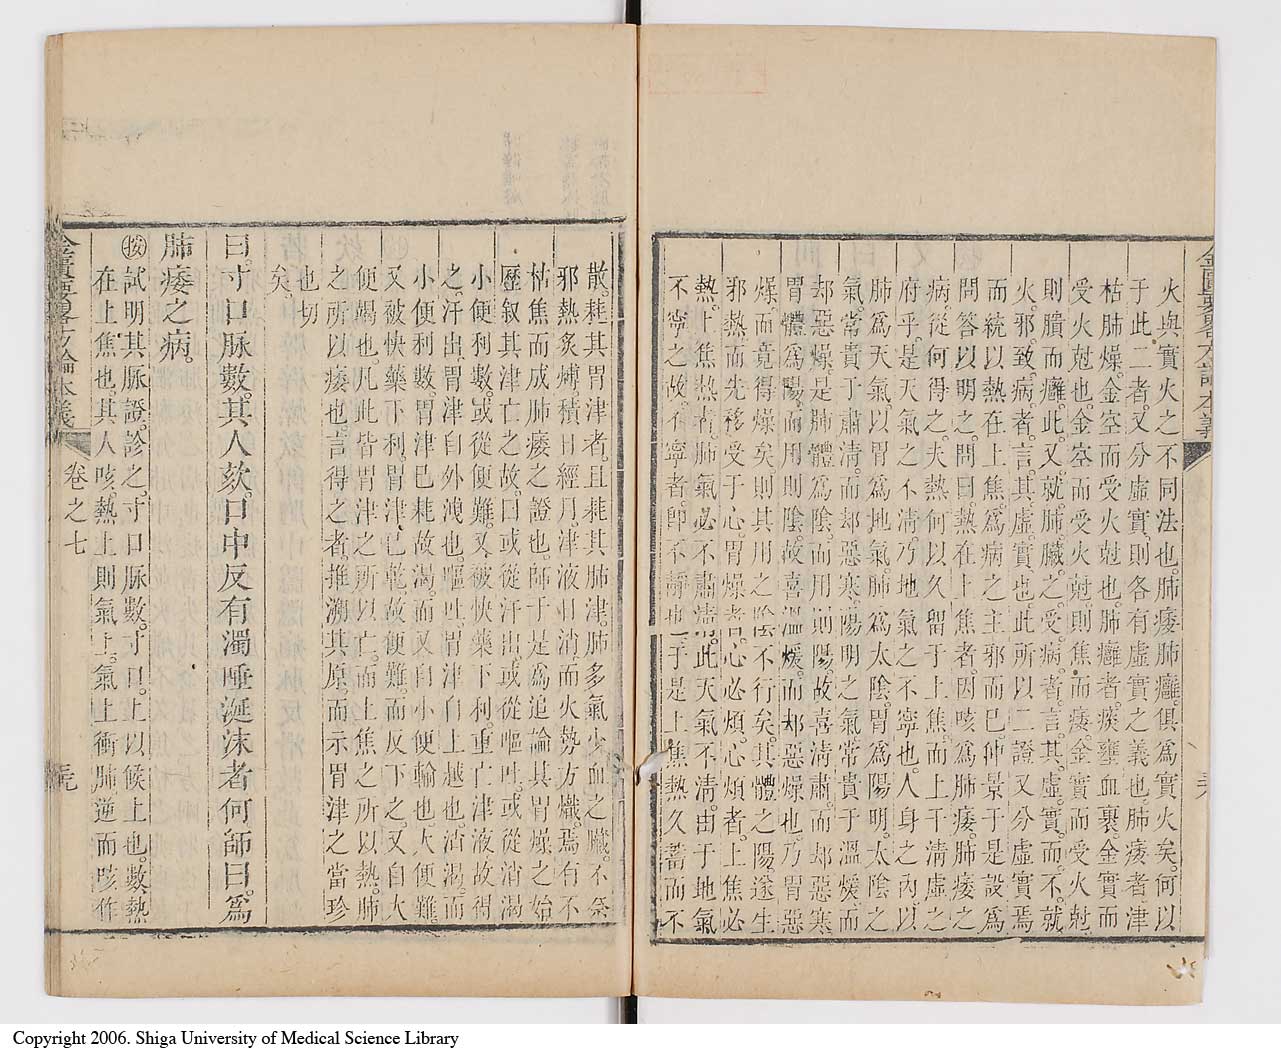 火與實火之不同法也。肺痿肺癰。俱爲實火矣。何以
于此二者。又分虛實。則各有虛實之義也。肺痿者。津
枯肺燥。金空而受火尅也。肺癰者。痰壅血裹。金實而
受火尅也。金空而受火尅則焦而痿。金實而受火尅
則膹而癰。此又就肺臟之受病者。言其虛實。而不就
火邪。致病者。言其虛實也。此所以二證又分虛實焉
而統以熱在上焦。爲病之主邪而已。仲景于是設爲
問答以明之。問曰。熱在上焦者。因咳爲肺痿。肺痿之
病從何得之。夫熱何以久留于上焦。而上干淸虛之
府乎。是天氣之不淸。乃地氣之不寧也。人身之內。以
肺爲天氣。以胃爲地氣。肺爲太陰。胃爲陽明。太陰之
氣。常貴于肅淸而却惡寒。陽明之氣常貴于溫煖。而
却惡燥。是肺體爲陰。而用則陽。故喜淸肅。而却惡寒
胃體爲陽。而用則陰。故喜溫煖。而却惡燥也。乃胃惡
燥。而竟得燥矣。則其用之陰不行矣。其體之陽。遂生
邪熱。而先移受于心。胃燥者。心必煩。心煩者。上焦必
熱。上焦熱者。肺氣必不肅淸。此天氣不淸。由于地氣
不寧之故。不寧者卽不靜也。于是上焦熱久蓄而不
金匱要畧方論本義
散。耗其胃津者。且耗其肺津。肺多氣少血之臟。不禁
邪熱炙煿。積日經月。津液日消而火勢方熾。焉有不
枯焦而成肺痿之證也。師于是爲追論其胃燥之始
歷叙其津亡之故。曰或從汗出。或從嘔吐。或從消渴
小便利數。或從便難。又被快藥下利。重亡津液故得
之汗出。胃津自外洩也。嘔吐。胃津自上越也。消渴。而
小便利數。胃津已耗故渴。而又自小便輸也。大便難
又被快藥下利。胃津已乾。故便難。而反下之。又自大
便竭也。凡此皆胃津之所以亡。而上焦之所以熱。肺
之所以痿也。言得之者。推溯其原。而示胃津之當珍
也切
矣。
曰。寸口脉數。其人欬。口中反有濁唾涎沫者何。師曰。爲
肺痿之病。
㊭試明其脈證。診之。寸口脈數。寸口。上以候上也。數。熱
在上焦也。其人咳。熱上則氣上。氣上衝肺。逆而咳作
金匱要畧方論本義
卷之七